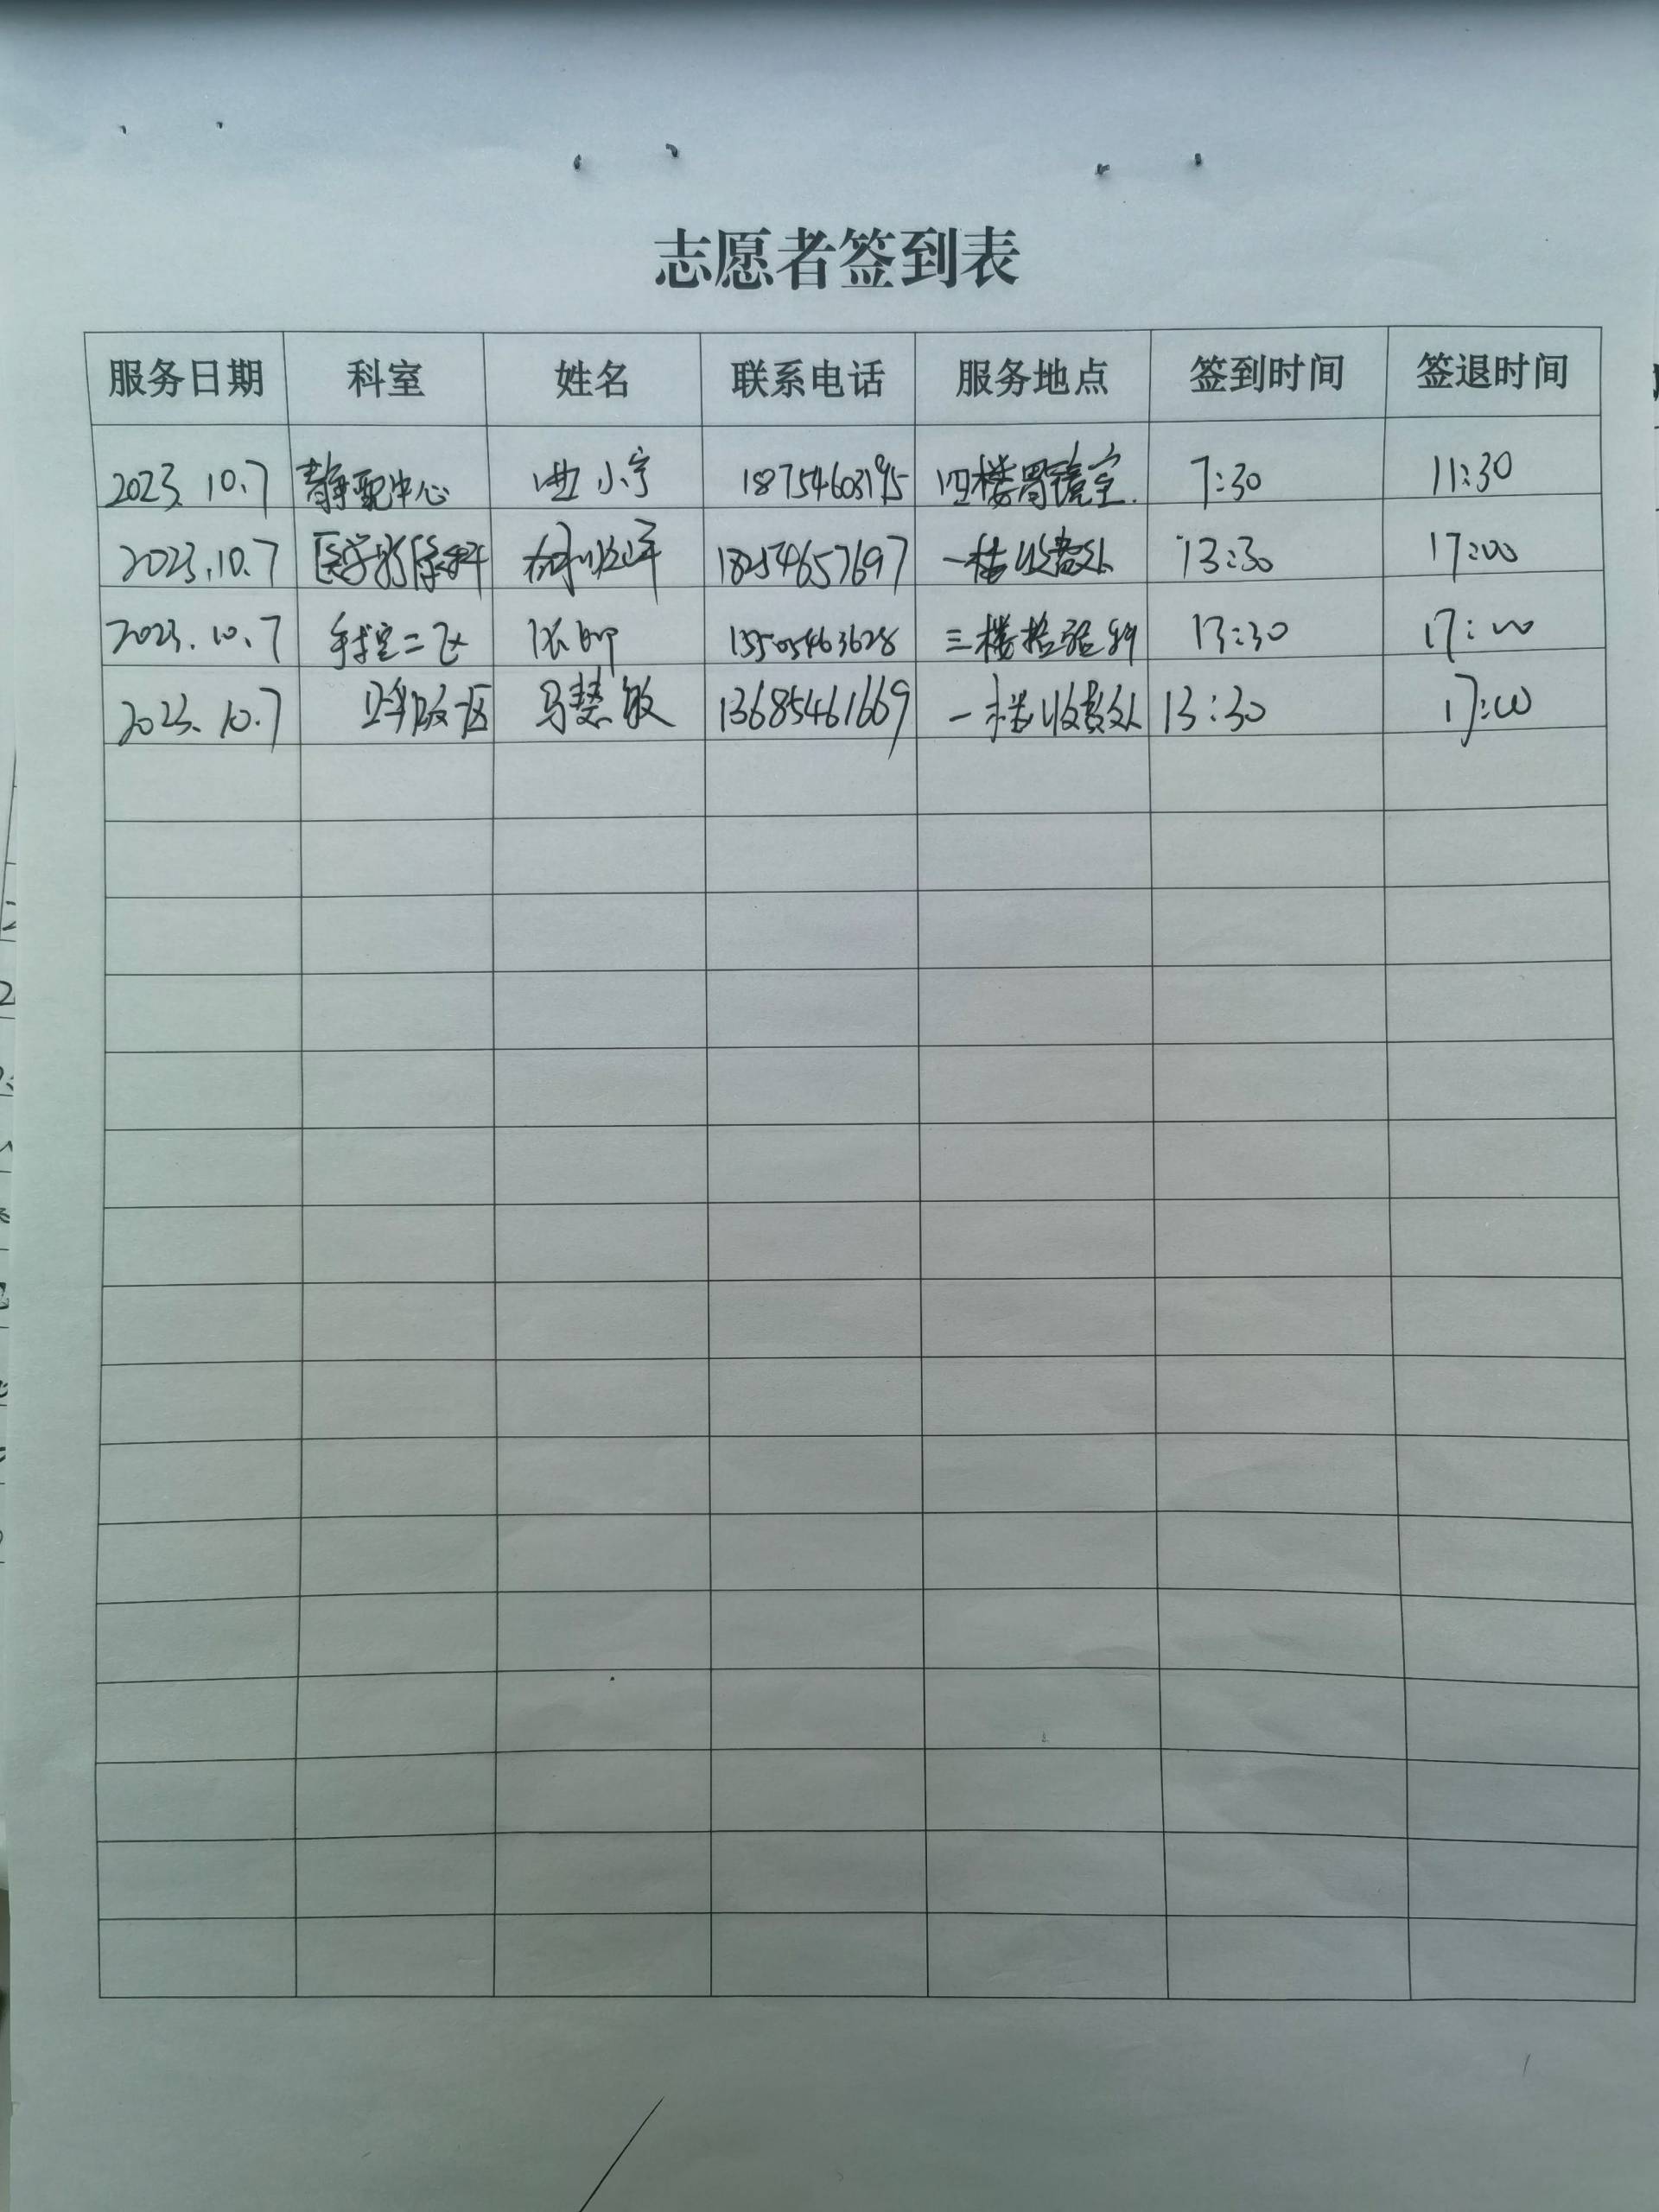 志愿者签到表
服务日期 科室 姓名 联系电话 服务地点 签到时间 签退时间
2023.10.7 静配中心 曲小宁 18754603195 四楼胃镜室. 7:30 11:30
2023.10.7 医学影像科 18254657697 一楼收费处 13:30 17:00
2023.10.7 手术室二区 13505463628 三楼检验科 13:30 17:00
2023.10.7 马慧敏 13685461669 一楼收费处 13:30 17:00